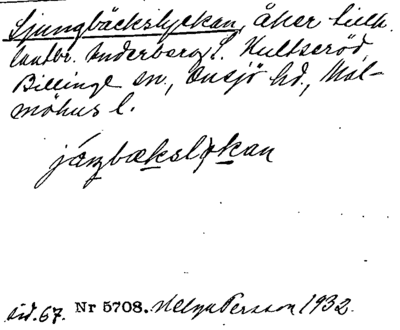 Ljungbäckslyckan, åker tillh.
lantbr. Underberg, S. Hultseröd,
Billinge sn., Onsjö hd., Mal-
möhus l.
jáŋbækslykan
sid. 67. Nr 5708. Helga Persson 1932.